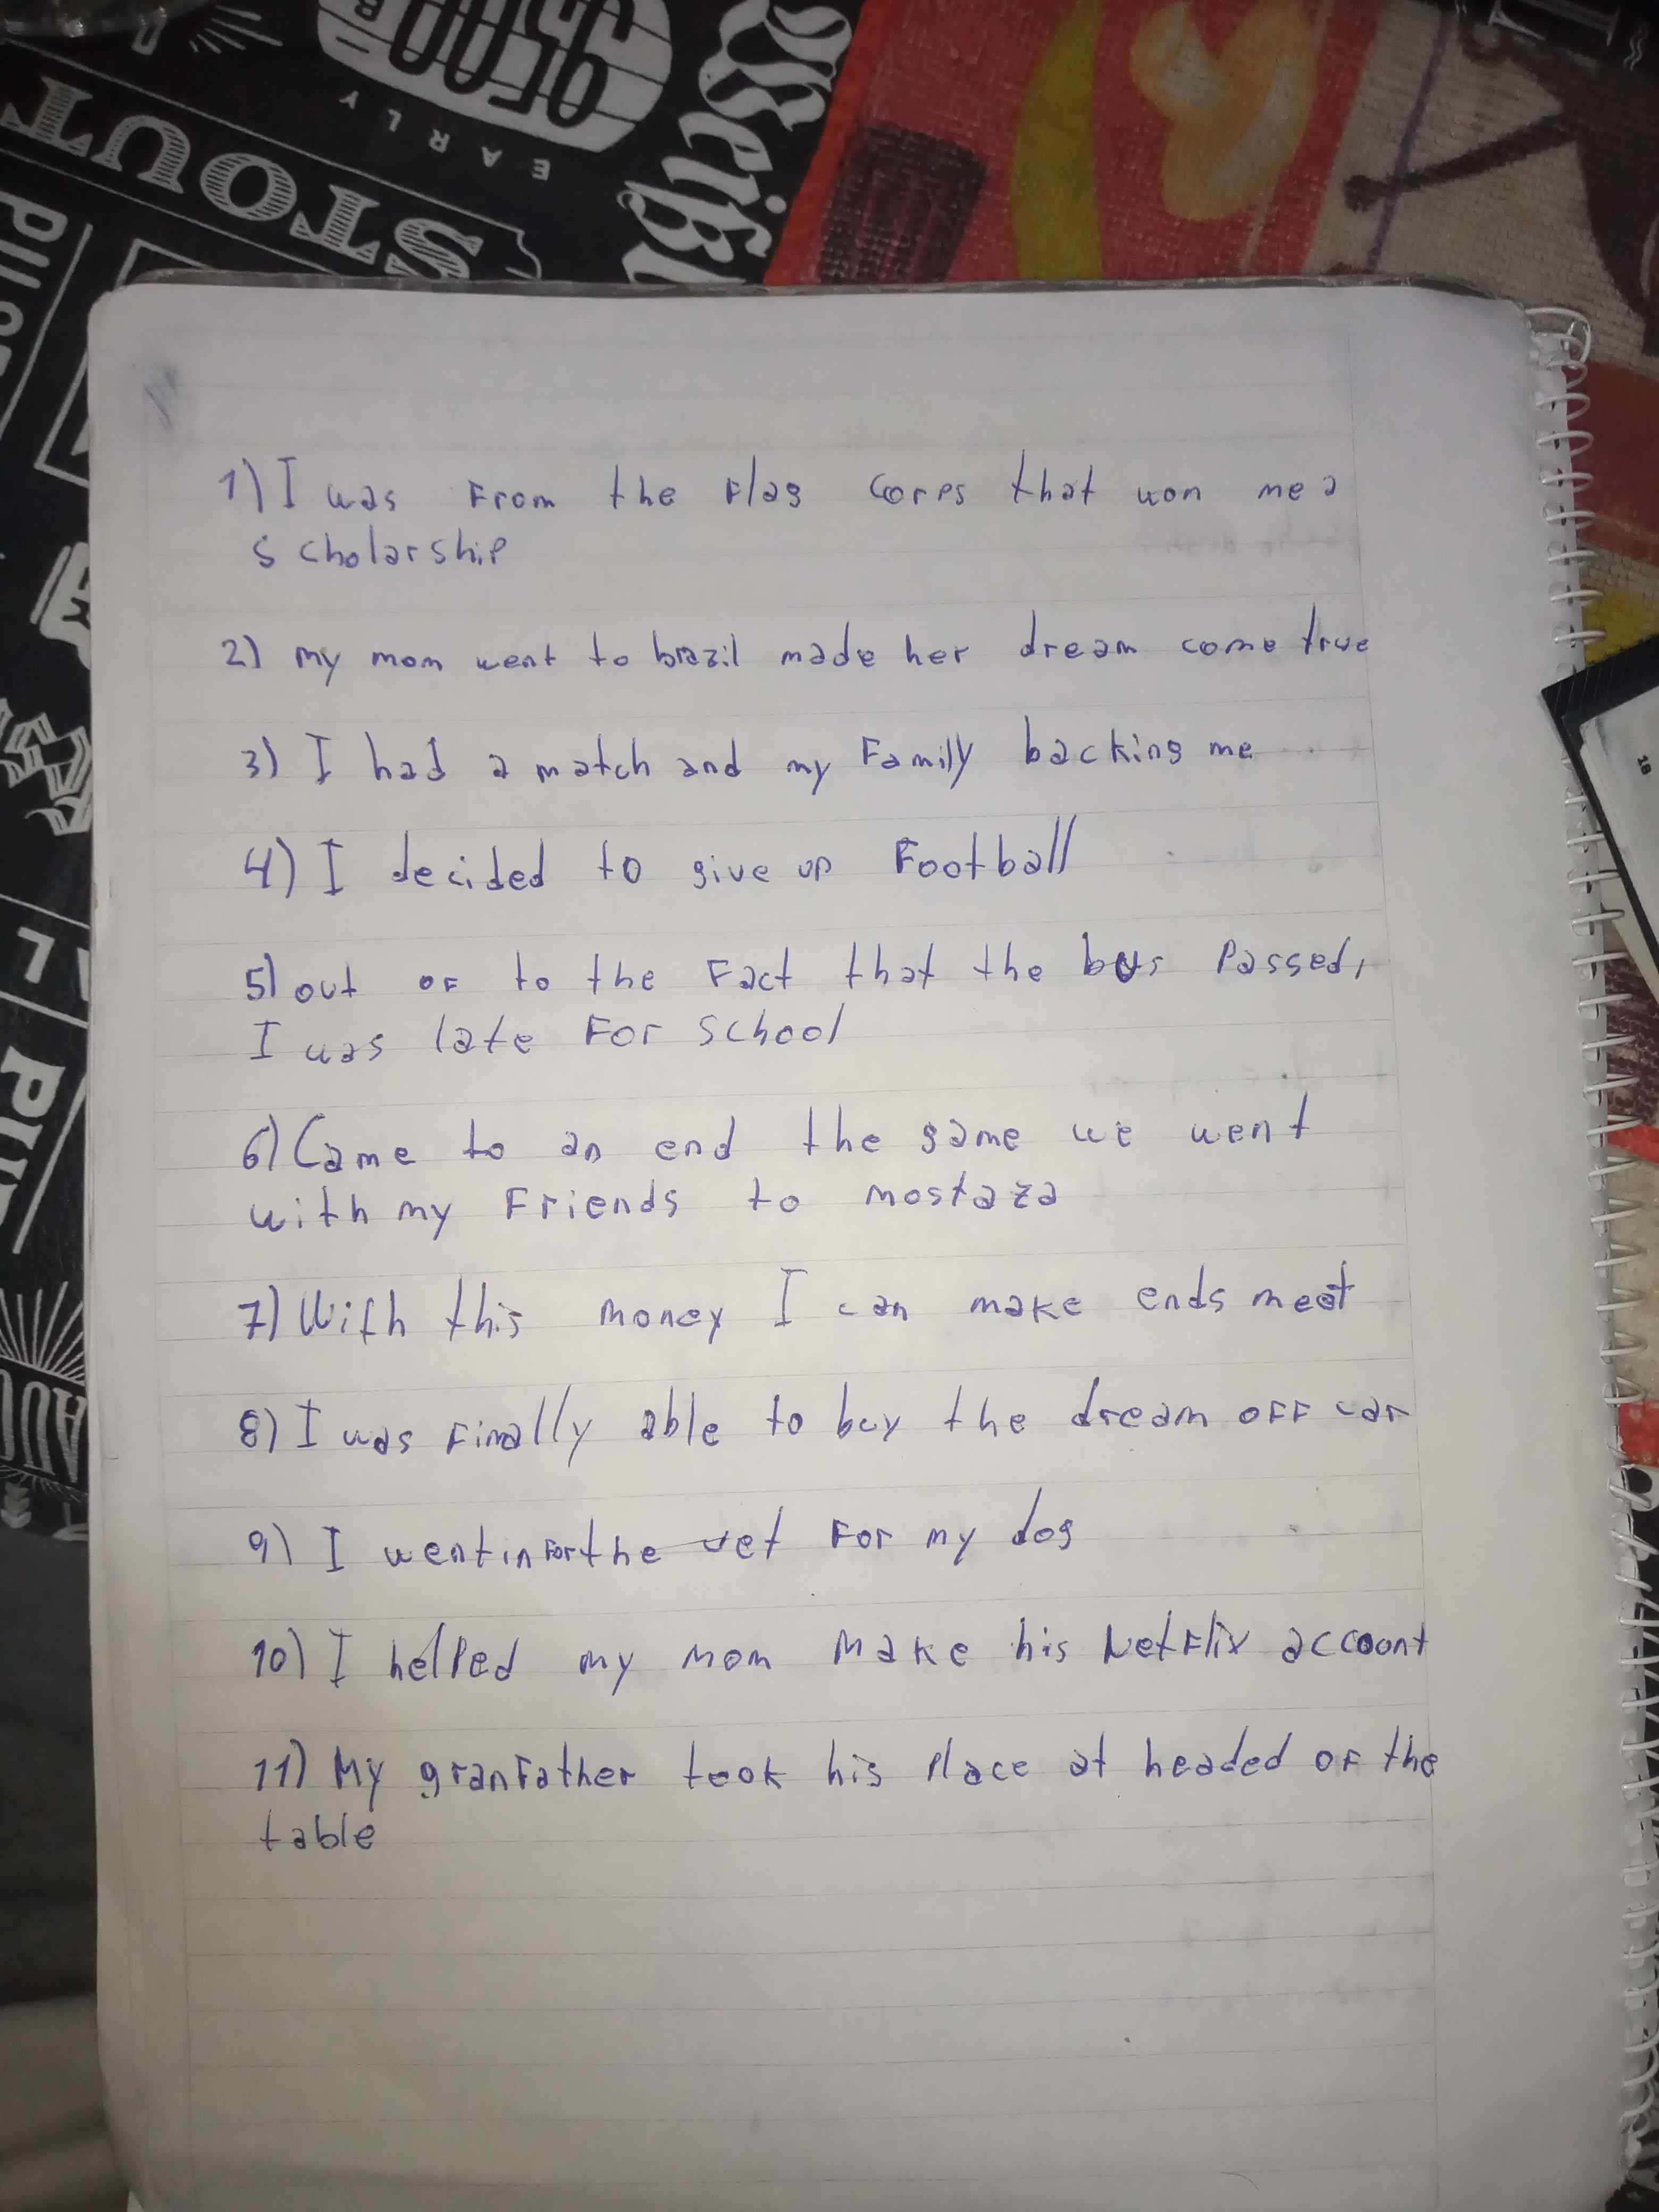 STOUT
EARLY
1) I was From the Flag corps that won me a
scholarship
2) my mom went to brazil made her dream come true
3) I had a match and my Family backing me
4) I decided to give up Football
5) out of to the Fact that the bus Passed,
I was late For school
6) Came to an end the game we went
with my Friends to mostaza
7) With this money I can make ends meet
8) I was Finally able to buy the dream off car
9) I went in For the vet For my dog
10) I helped my mom Make his Netflix account
11) My granFather took his place at headed of the
table
18